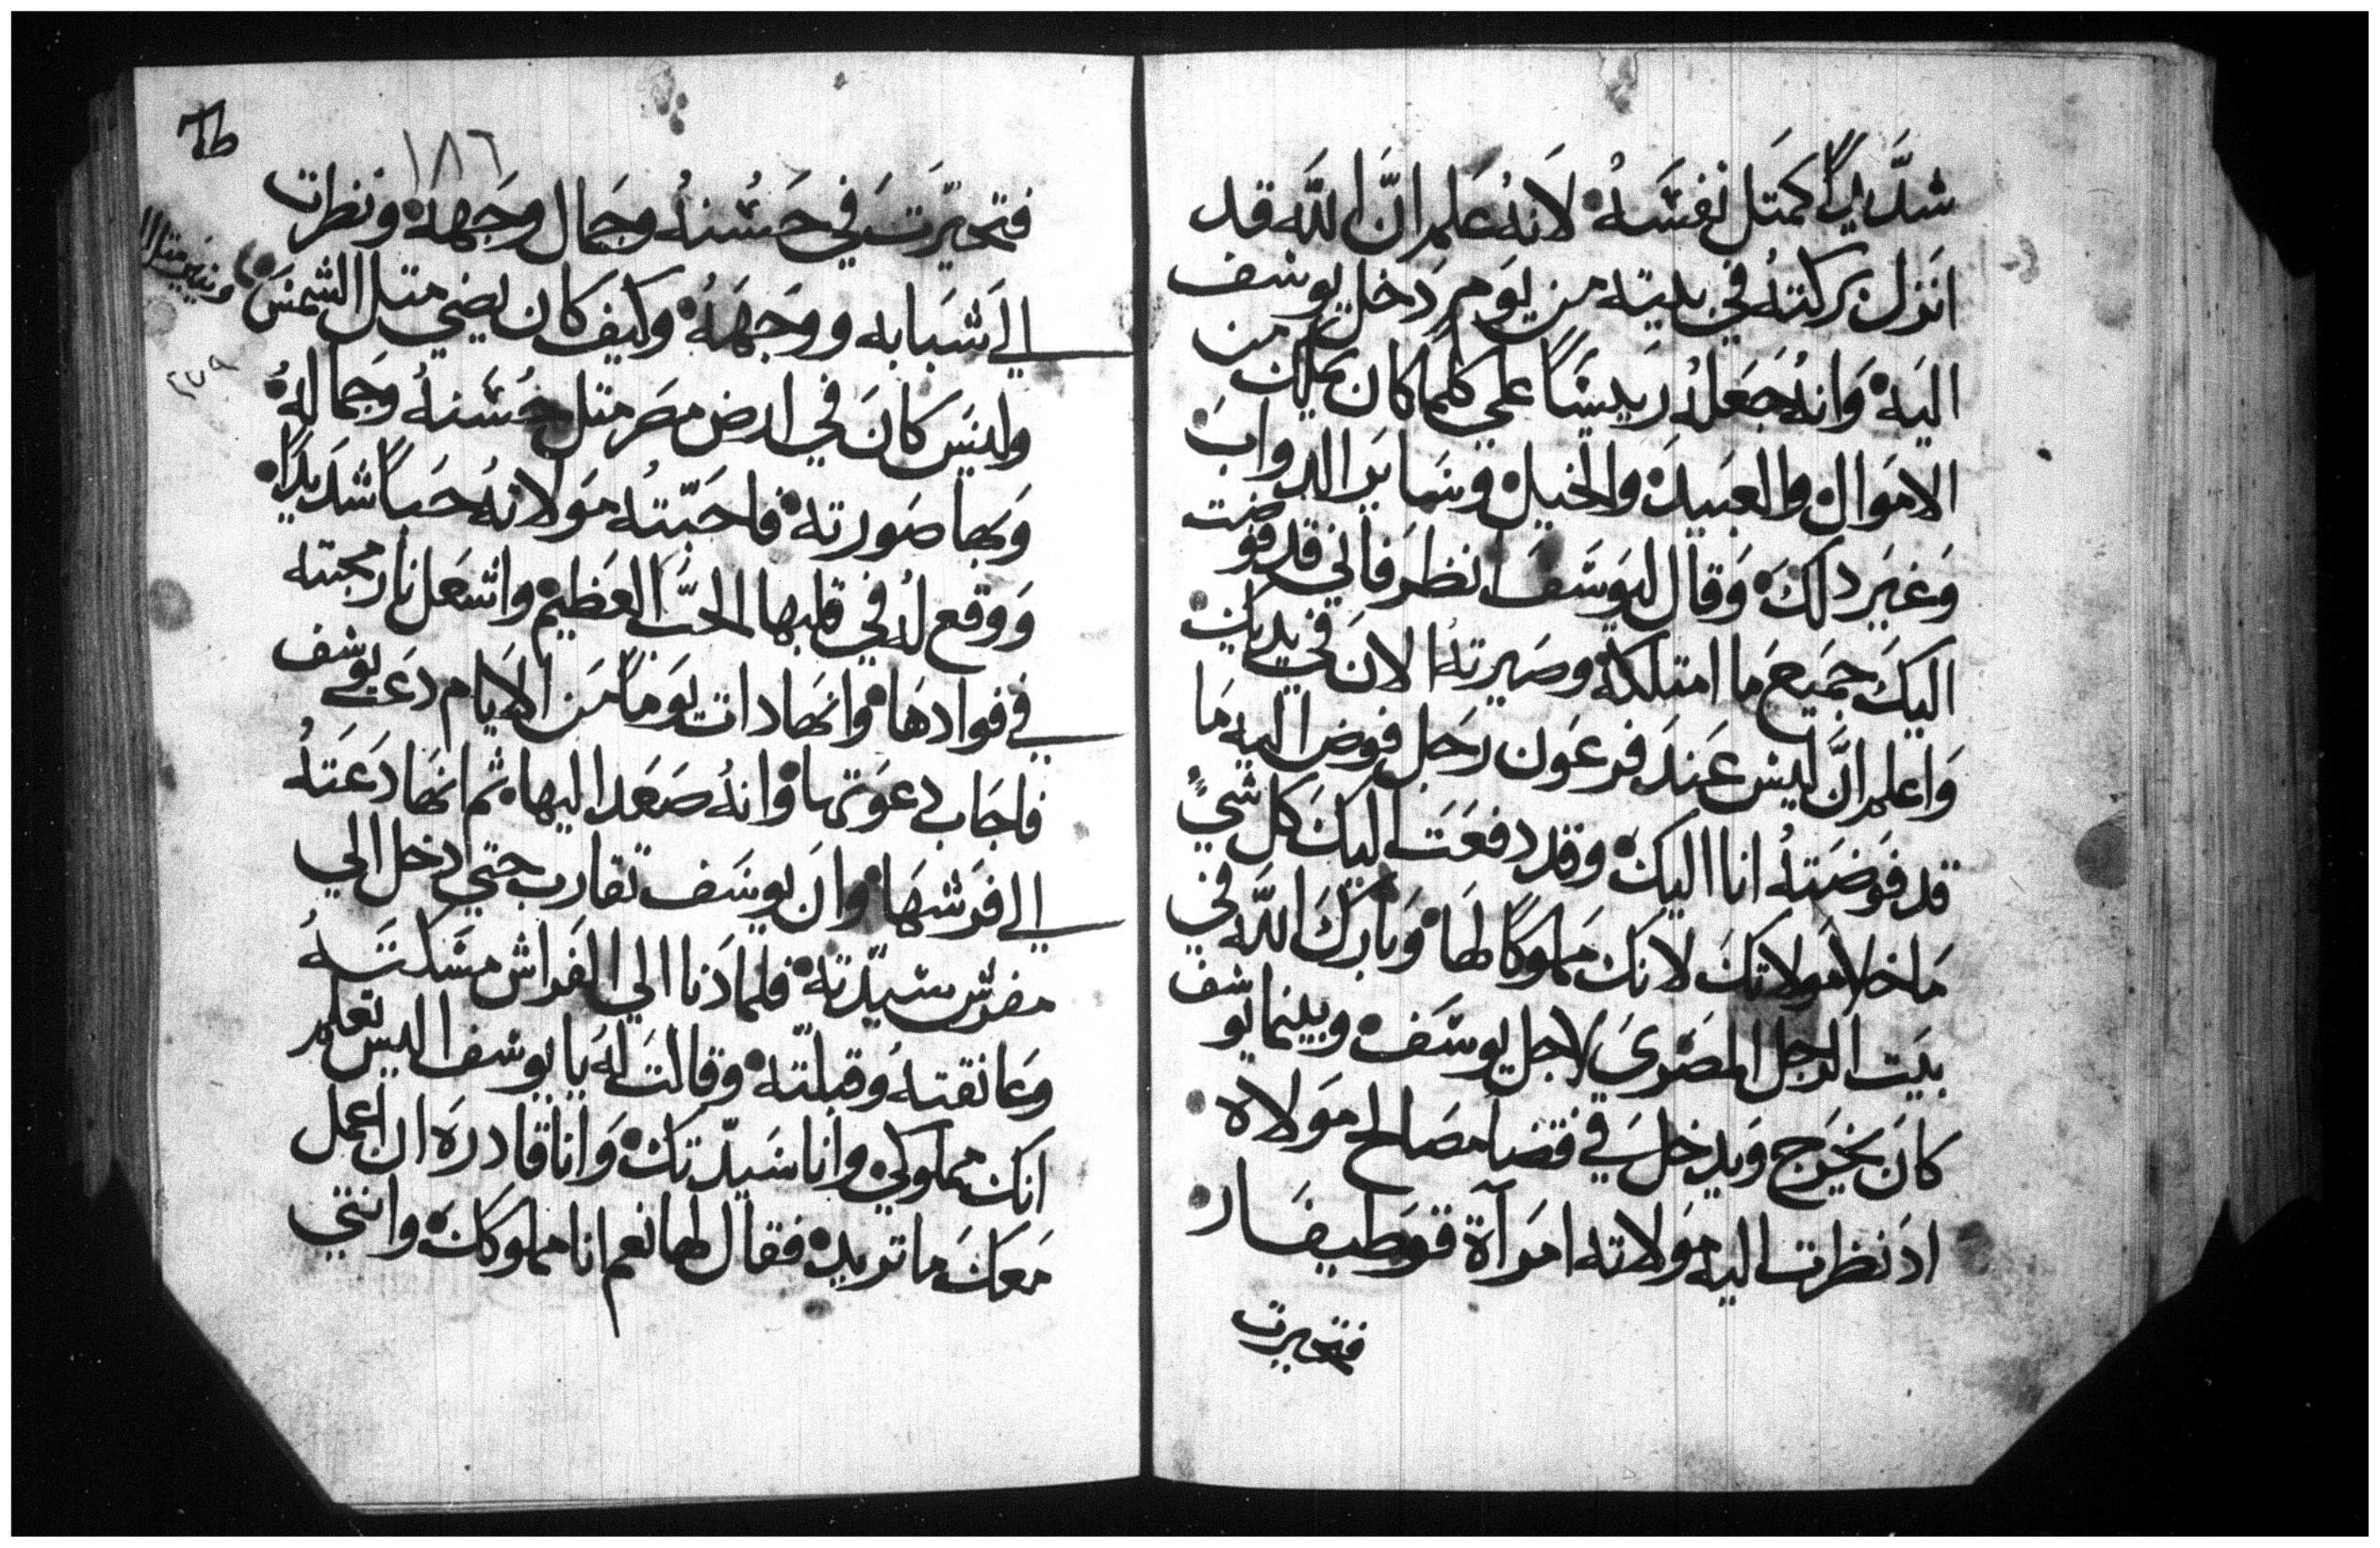 شدَيداً كمتل نفسَهُ لانهُ علم انّ اللَّه قد
انزل بركتهُ في بيته من يوم دَخل يوسف
اليَه وَانهُ جَعَلهُ رَييسًا علي كلما كان يملك من
الاموَال والعبَيد والخيل وسَاير الدوابَ
وَغيَر دلكَ وَقال ليوسَف انظرَ فاني قد فوضت
اليكَ جمَيعَ ما امتلكهُ وصَيرتهُ الانَ في يديك
وَاعلم انَّ ليس عَندَ فرعَون رَجل فوض اليه مَا
قد فوَضَتهُ انا اليكَ وقد دفعَت اليَكَ كل شيٍ
مَا خلا مولاتكَ لانكَ مَملوكًا لهَا وَبَاركَ اللَّه في
بيَت الرجل المصَريَ لاجل يوسَف وبينما يوسف
كانَ يخَرج وَيدخلَ في قضا مصَالح مَولاه
ادَ نظرت اليه موَلاته امَرآة قوطيفَار
فتحيرت
٦٦
١٨٦
فتحيّرَت في حَسُنهُ وجمَال وجَهه ونظرت
الي شَبَابه ووَجهَهُ وكيف كان يضي متل الشمسَ وينير متل ال
٢٧٩
وليَس كانَ في ارض مصَر متل حُسَنهُ وَجمالهُ
وَبها صَورته فاحَبّتهُ موَلاتهُ حَباً شدَيدًا
وَوقع لهُ في قلبها الحبّ العَظيم واشعَل نار محبته
في فوادهَا وانهَا دات يوَماً مَن الايَام دَعَت يوسف
فاجَاب دعوَتها وانهُ صَعَد اليها ثم انهَا دَعَتهُ
الي فرَشهَا وانَ يوسَف تقارب حتي دخل الي
مفرش سَيّدَته فلما دَنا الي الفرَاش مسَكتَهُ
وعَانقتهُ وقبلّته وقالتَ لهُ يا يوسف اليس تعلم
انكَ مملوكي وانا سَيدّتكَ وَانا قادرهَ ان اعمل
مَعكَ ما تريد فقال لها نعم انا مملوككَ وانتي